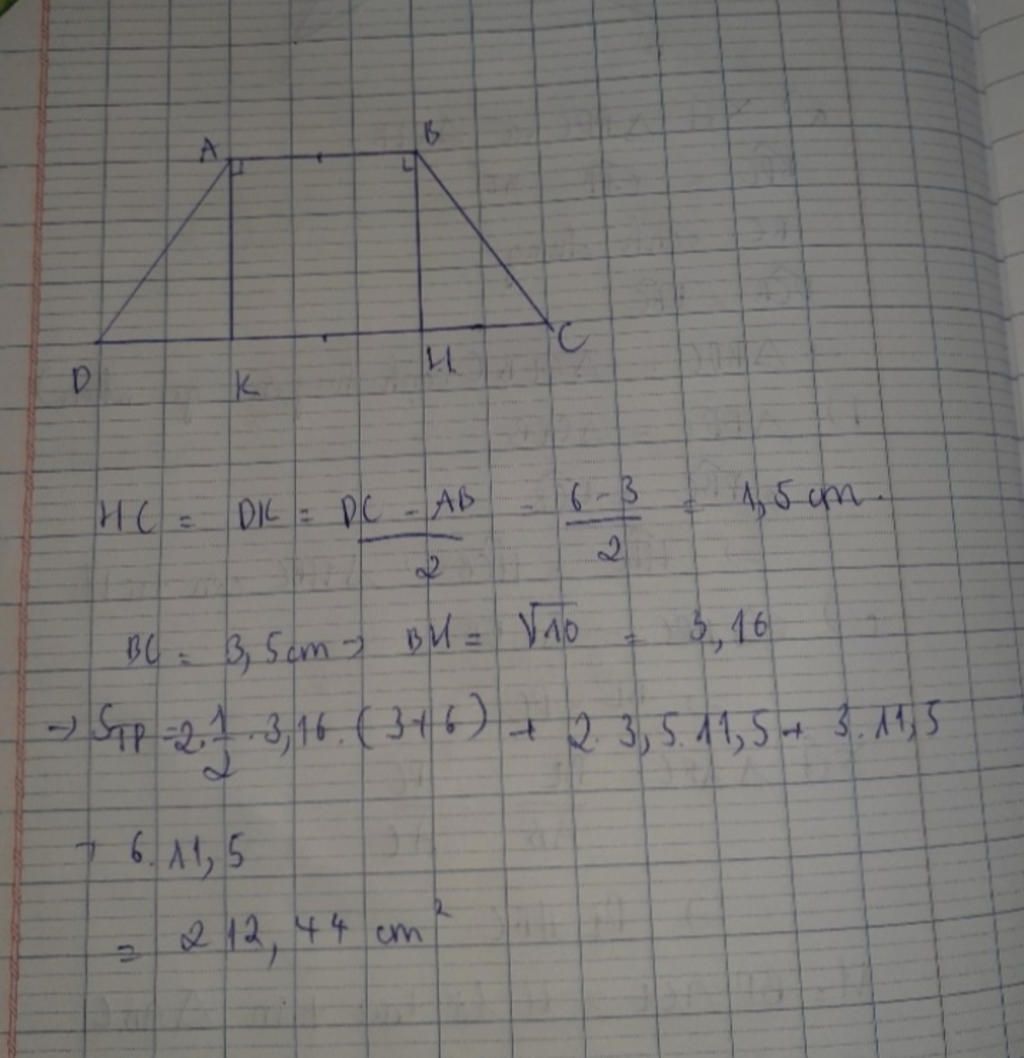 A B
D K H C
HC = DK = \frac{DC - AB}{2} = \frac{6-3}{2} = 1,5 cm.
BC = 3,5 cm → BH = √10 = 3,16
→ S_{TP} = 2. \frac{1}{2} . 3,16. (3+6) + 2. 3,5. 11,5 + 3. 11,5
+ 6. 11,5
= 212,44 cm²